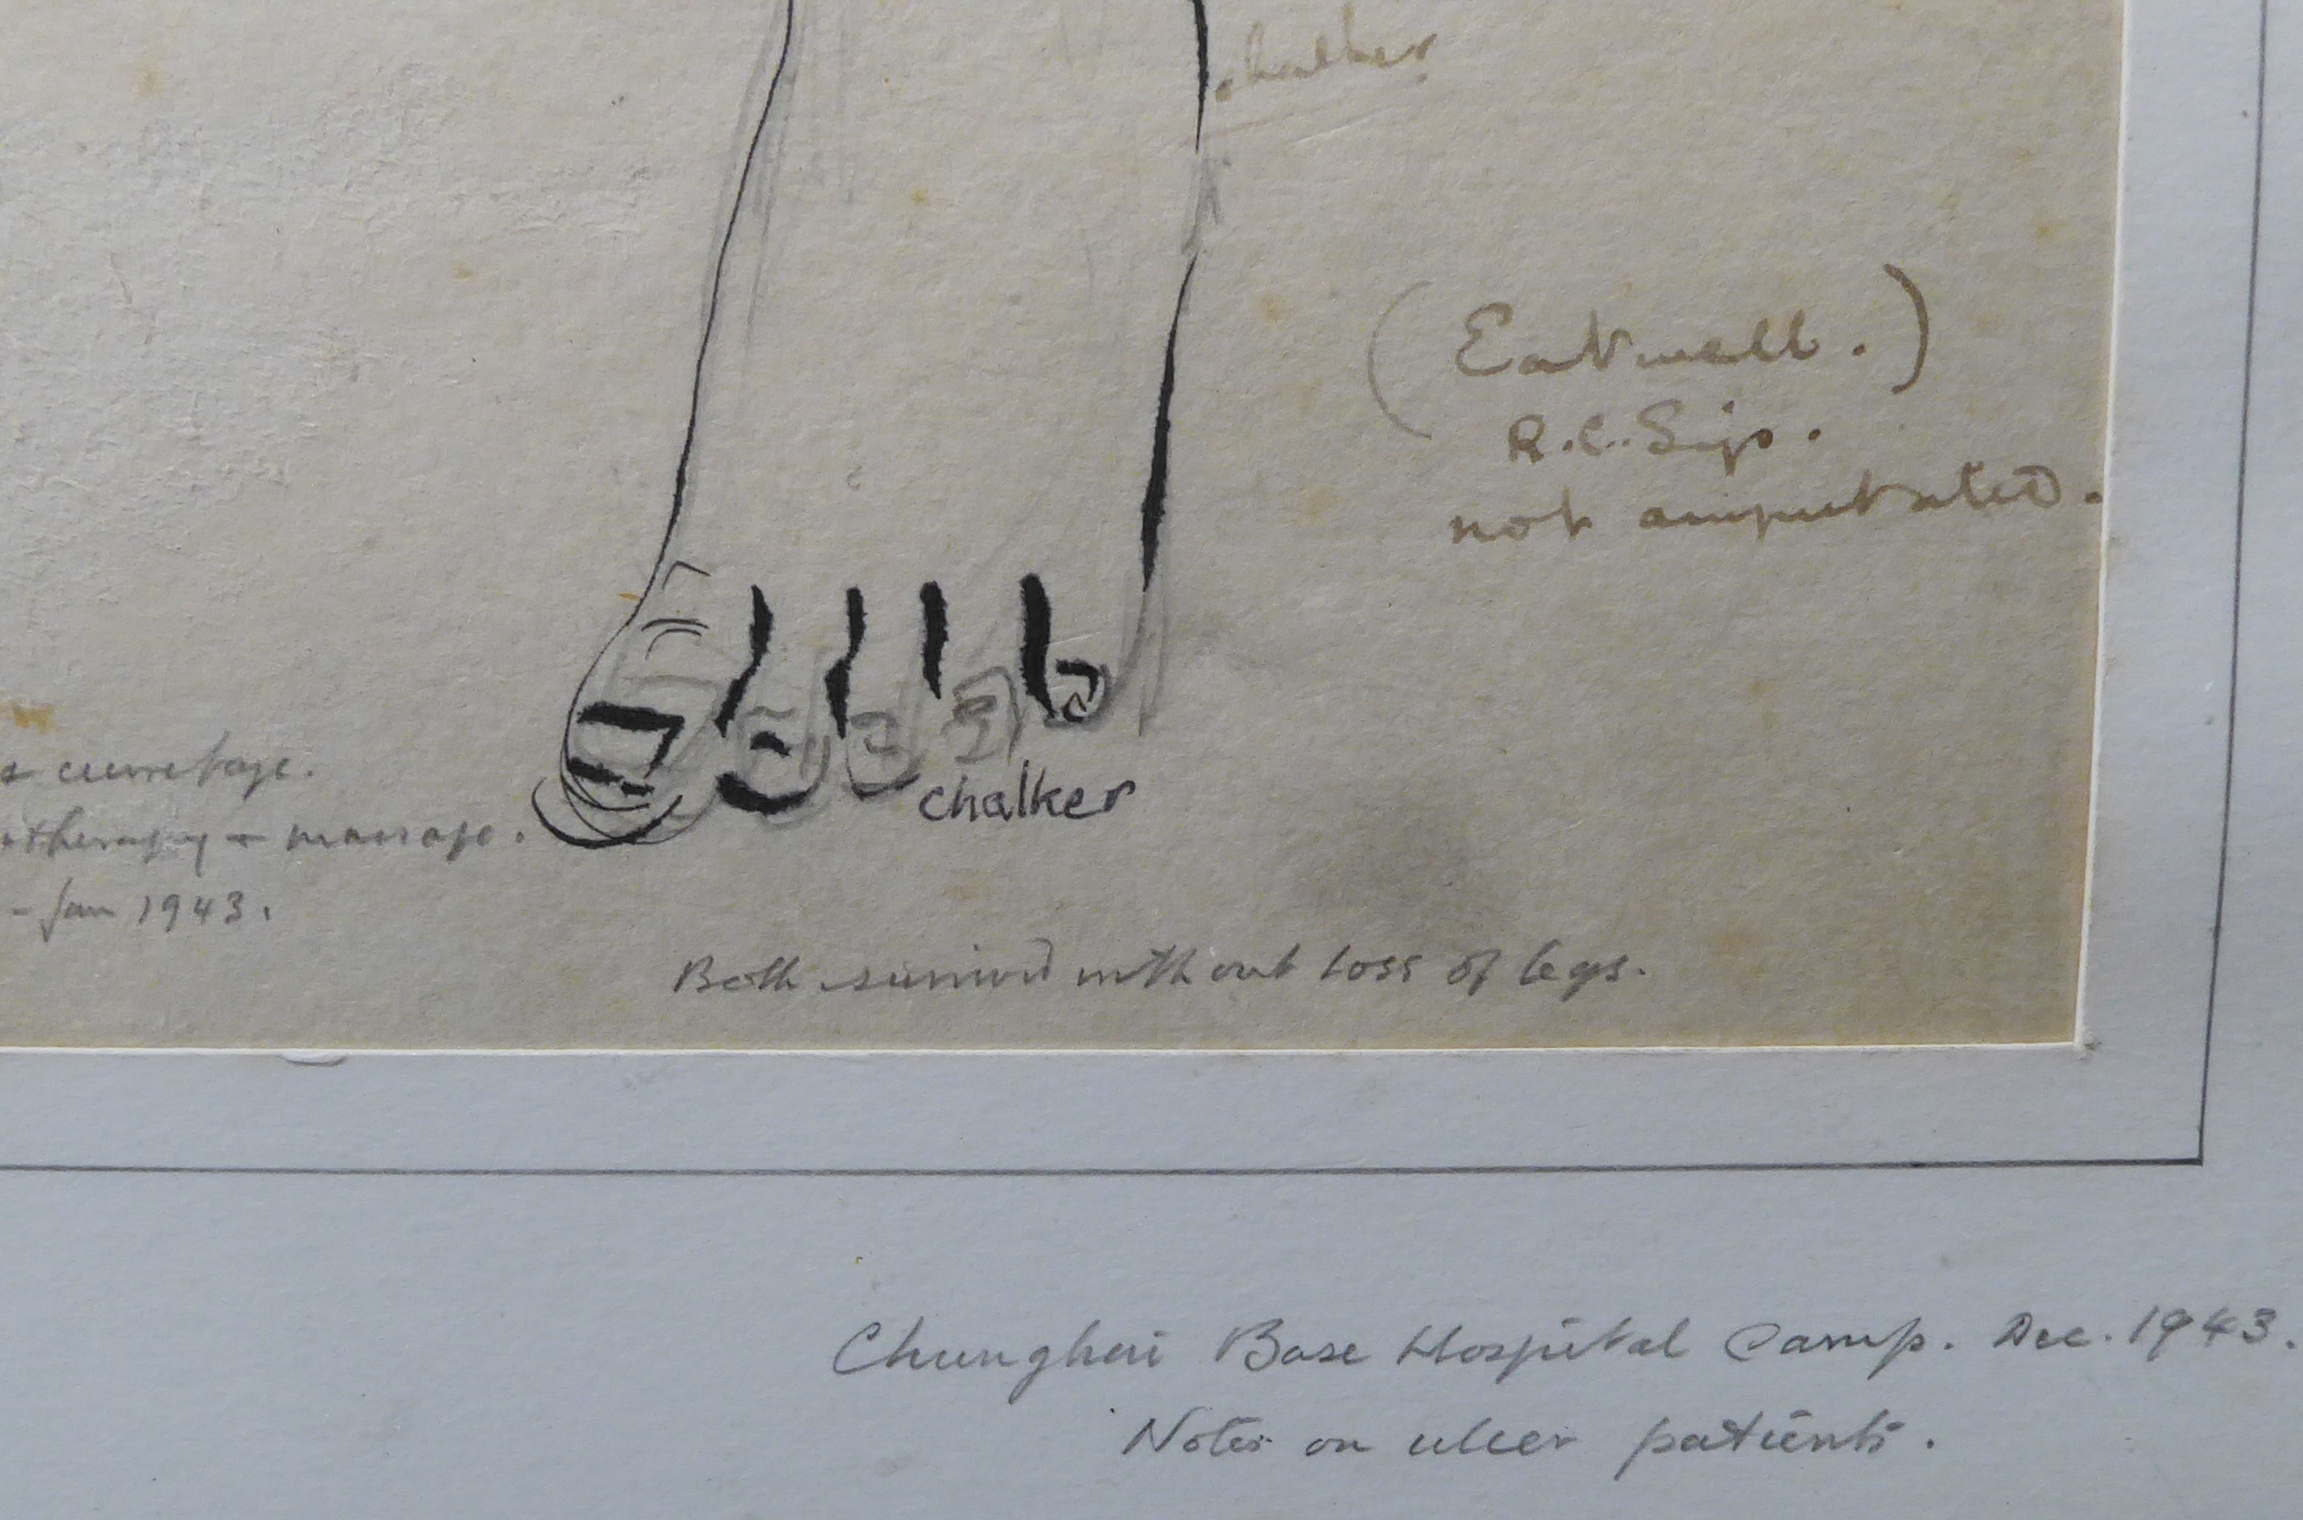 chalker
(Eatwell.)
R.C. Sigs.
not amputated.
curretage.
otherapy + massage.
- Jan 1943.
chalker
Both survived without loss of legs.
Chunghai Base Hospital Camp. Dec. 1943.
Notes on ulcer patients.